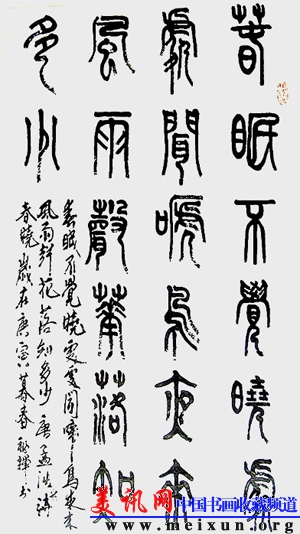 春眠不覺曉處
處聞啼鳥夜來
風雨聲華落知
多少
春眠不覺曉處處聞啼鳥夜来
風雨聲花落知多少唐孟浩詩
春曉歲在庚寅暮春书
美讯网
中国书画收藏频道
www.meixun.org